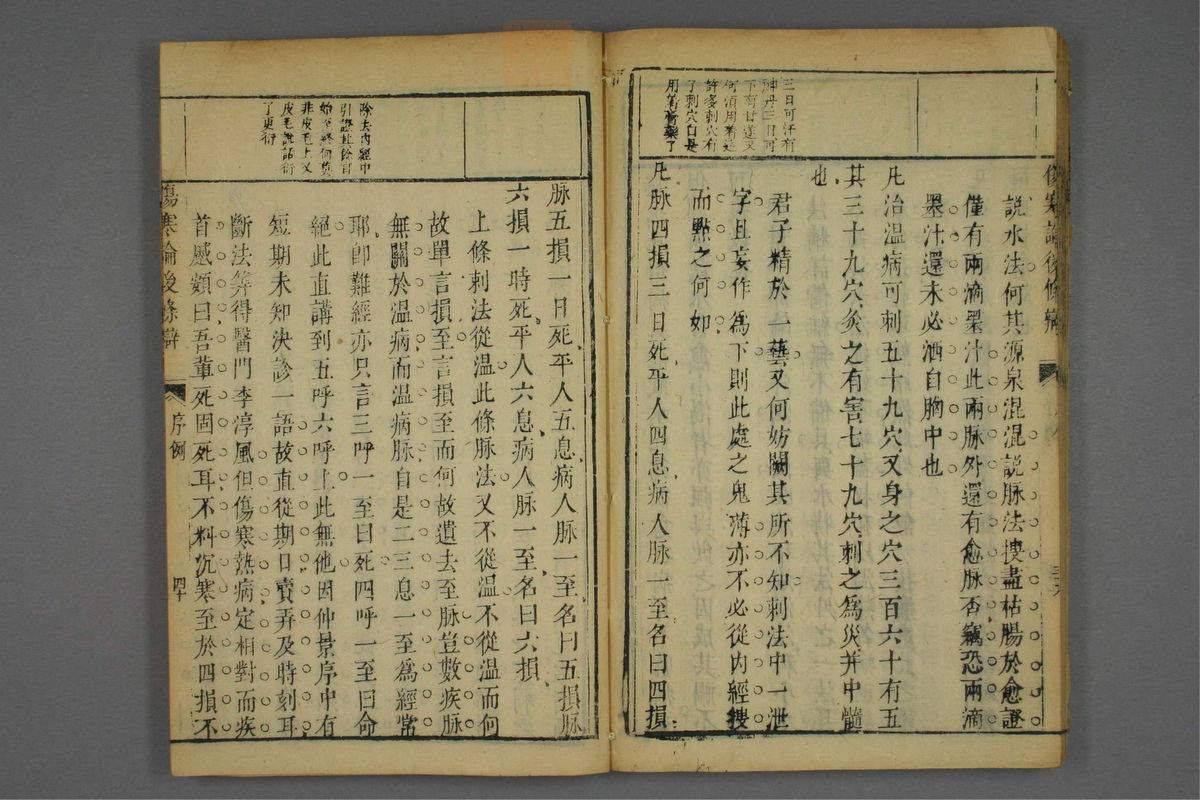 傷寒論後條辯
三日可汗有
神丹三日可
下有甘遂又
何須用着這
許多刺穴有
了刺穴自是
用着膏藥了
說水法何其源泉混混說脉法捜盡枯腸於愈證
僅有兩滴墨汁此兩脉外還有愈脉否竊恐兩滴
墨汁還未必洒自胸中也
凡治温病可刺五十九穴又身之穴三百六十有五
其三十九穴灸之有害七十九穴刺之爲災并中髓
也
君子精於一藝又何妨闕其所不知刺法中一泄
字且妄作爲下則此處之鬼薄亦不必從内經捜
而點之何如
凡脉四損三日死平人四息病人脉一至名曰四損
脉五損一日死平人五息病人脉一至名曰五損脉
六損一時死平人六息病人脉一至名曰六損
上條刺法從温此條脉法又不從温不從温而何
故單言損至言損至而何故遺去至脉豈數疾脉
無關於温病而温病脉自是二三息一至爲經常
耶卽難經亦只言三呼一至曰死四呼一至曰命
絕此直講到五呼六呼上此無他因仲景序中有
短期未知決診一語故直從期日賣弄及時刻耳
斷法筭得醫門李淳風但傷寒熱病定相對而疾
首蹙額曰吾輩死固死耳不料沉寒至於四損不
除去内經中
引證其餘自
始至終何莫
非皮毛上又
皮毛說話衍
了更衍
傷寒論後條辯
序例
四十